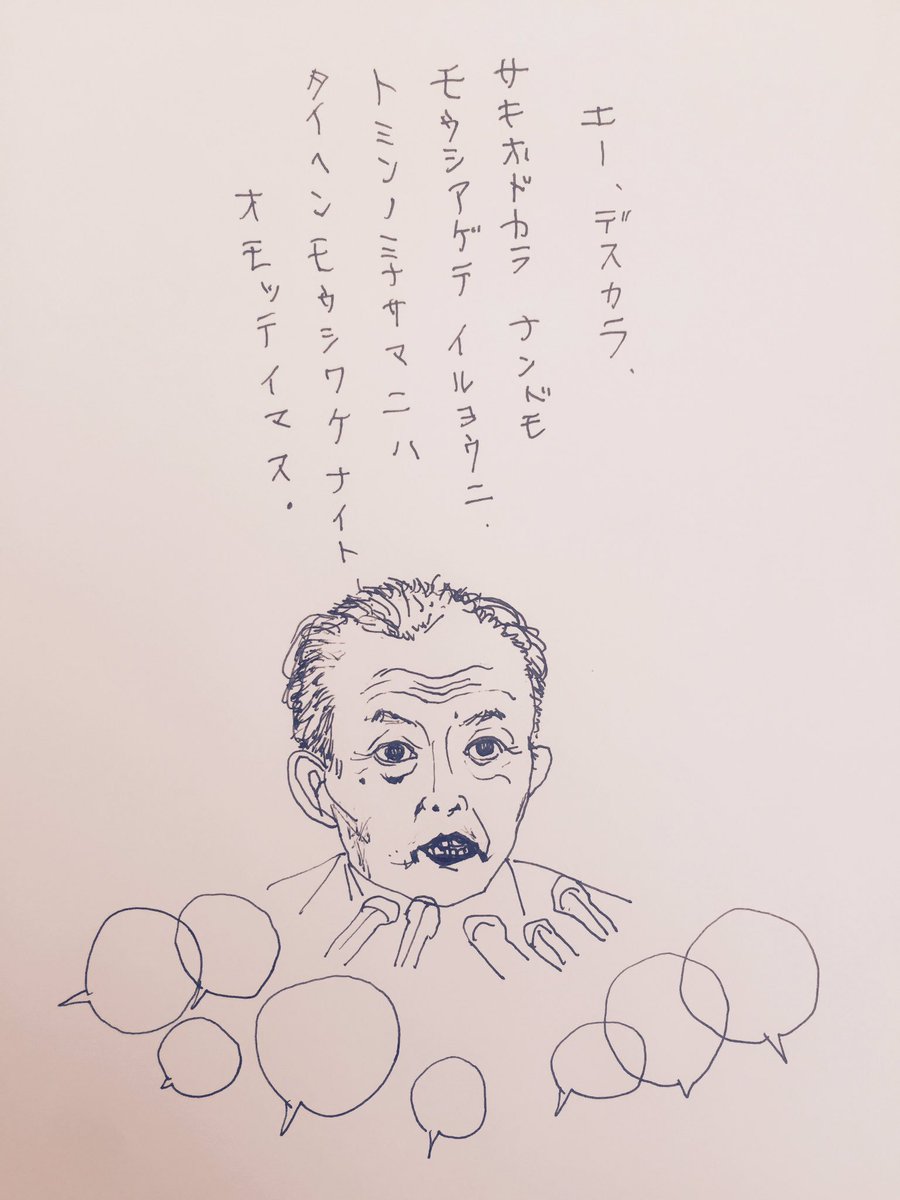 エー、デスカラ、
サキホドカラ ナンドモ
モゥシアゲテ イルヨウニ、
トミンノミナサマニハ
タイヘンモゥシワケナイト、
オモッテイマス.